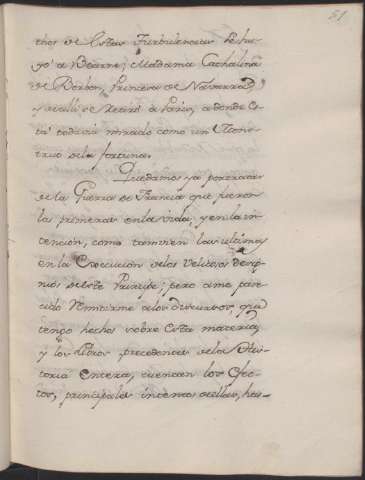 51
chos de Estas Turbulencias se hu-
yó a Bearne; Madama Cathalina
de Borbon, Princesa de Navarra,
y de allí se retiró a Paris, adonde es-
tá todavia mirado como un Mons-
truo de la fortuna.
Quedamos ya por tratar
de la Guerra de Francia que fueron
las primeras en la vida, y en la in-
tencion, como tamvien las ultimas
en la Execucion de los Velicosos desig-
nios de este Principe; pero ame pare-
cido Remitirme a los discursos, que
tengo hechos sobre Esta materia,
y los Libros precedentes de la His-
toria Entera, cuentan los Efec-
tos, principales intentos de ellas, has-